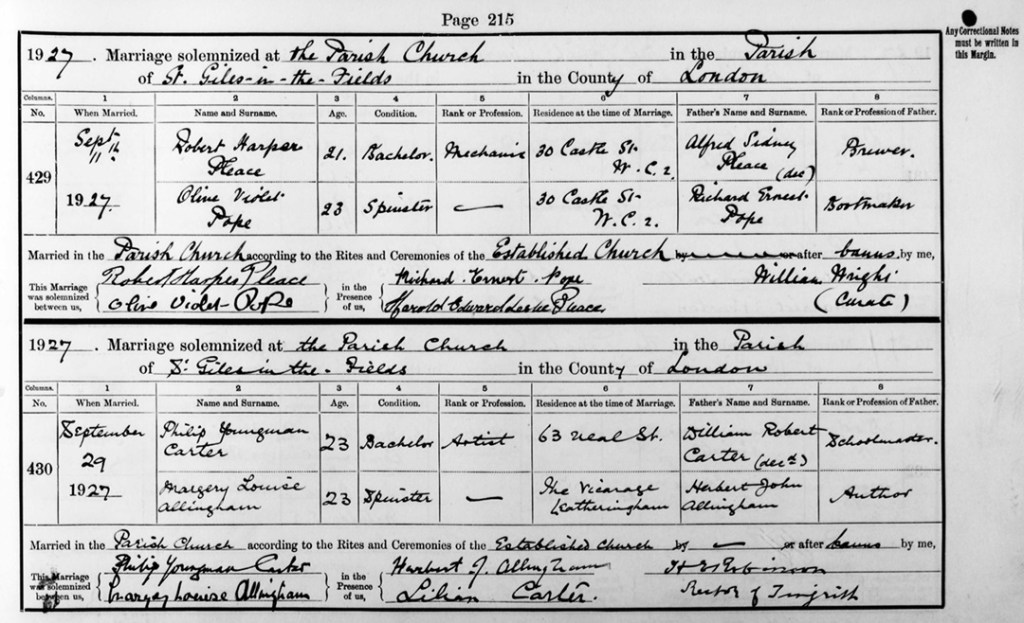 Page 215
Any Correctional Notes
must be written in
this Margin.
1927. Marriage solemnized at the Parish Church in the Parish
of St. Giles-in-the-Fields in the County of London
Columns. 1 2 3 4 5 6 7 8
No. When Married. Name and Surname. Age. Condition. Rank or Profession. Residence at the time of Marriage. Father's Name and Surname. Rank or Profession of Father.
429 Sept 11th 1927. Robert Harper Pleace 21. Bachelor. Mechanic 30 Castle St. W.C.2. Alfred Sidney Pleace (dec) Brewer.
Olive Violet Pope 23 Spinster — 30 Castle St. W.C.2. Richard Ernest Pope Bootmaker
Married in the Parish Church according to the Rites and Ceremonies of the Established Church by — or after banns by me,
This Marriage was solemnized between us, Robert Harper Pleace in the Presence of us, Richard Ernest Pope William Wright
Olive Violet Pope Harold Edward Leslie Pleace (Curate)
1927. Marriage solemnized at the Parish Church in the Parish
of St Giles in the-Fields in the County of London
Columns. 1 2 3 4 5 6 7 8
No. When Married. Name and Surname. Age. Condition. Rank or Profession. Residence at the time of Marriage. Father's Name and Surname. Rank or Profession of Father.
430 September 29 1927 Philip Youngman Carter 23 Bachelor Artist 63 Neal St. William Robert Carter (decd) Schoolmaster.
Margery Louise Allingham 23 Spinster — The Vicarage Letheringham Herbert John Allingham Author
Married in the Parish Church according to the Rites and Ceremonies of the Established Church by — or after banns by me,
This Marriage was solemnized between us, Philip Youngman Carter in the Presence of us, Herbert J. Allingham
Margery Louise Allingham Lilian Carter. Rector of Tingrith